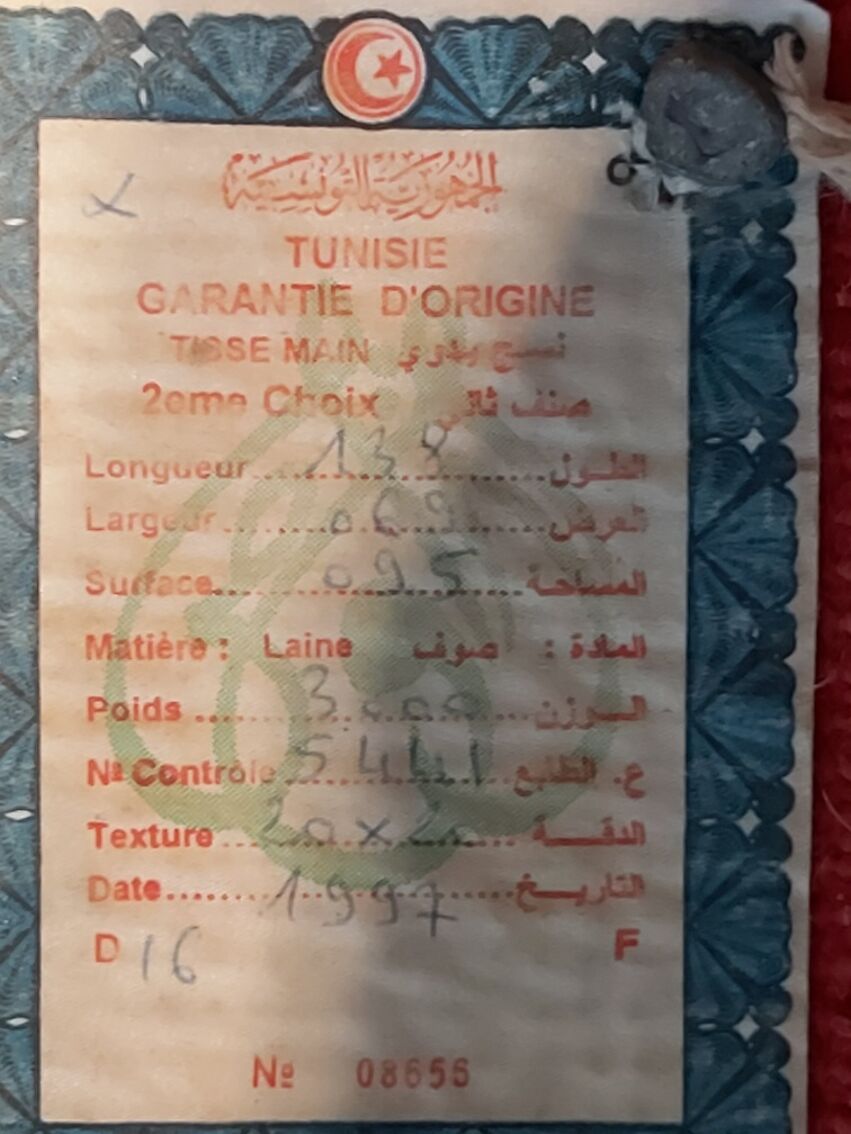 الجمهورية التونسية
TUNISIE
GARANTIE D'ORIGINE
TISSE MAIN نسج يدوي
2eme Choix صنف ثاني
Longueur 138 الطول
Largeur 069 العرض
Surface 095 المساحة
Matière : Laine صوف المادة :
Poids 3000 الوزن
Nº Contrôle ع. الطابع
Texture 20x20 الدقة
Date 1997 التاريخ
D 16 F
Nº 08656